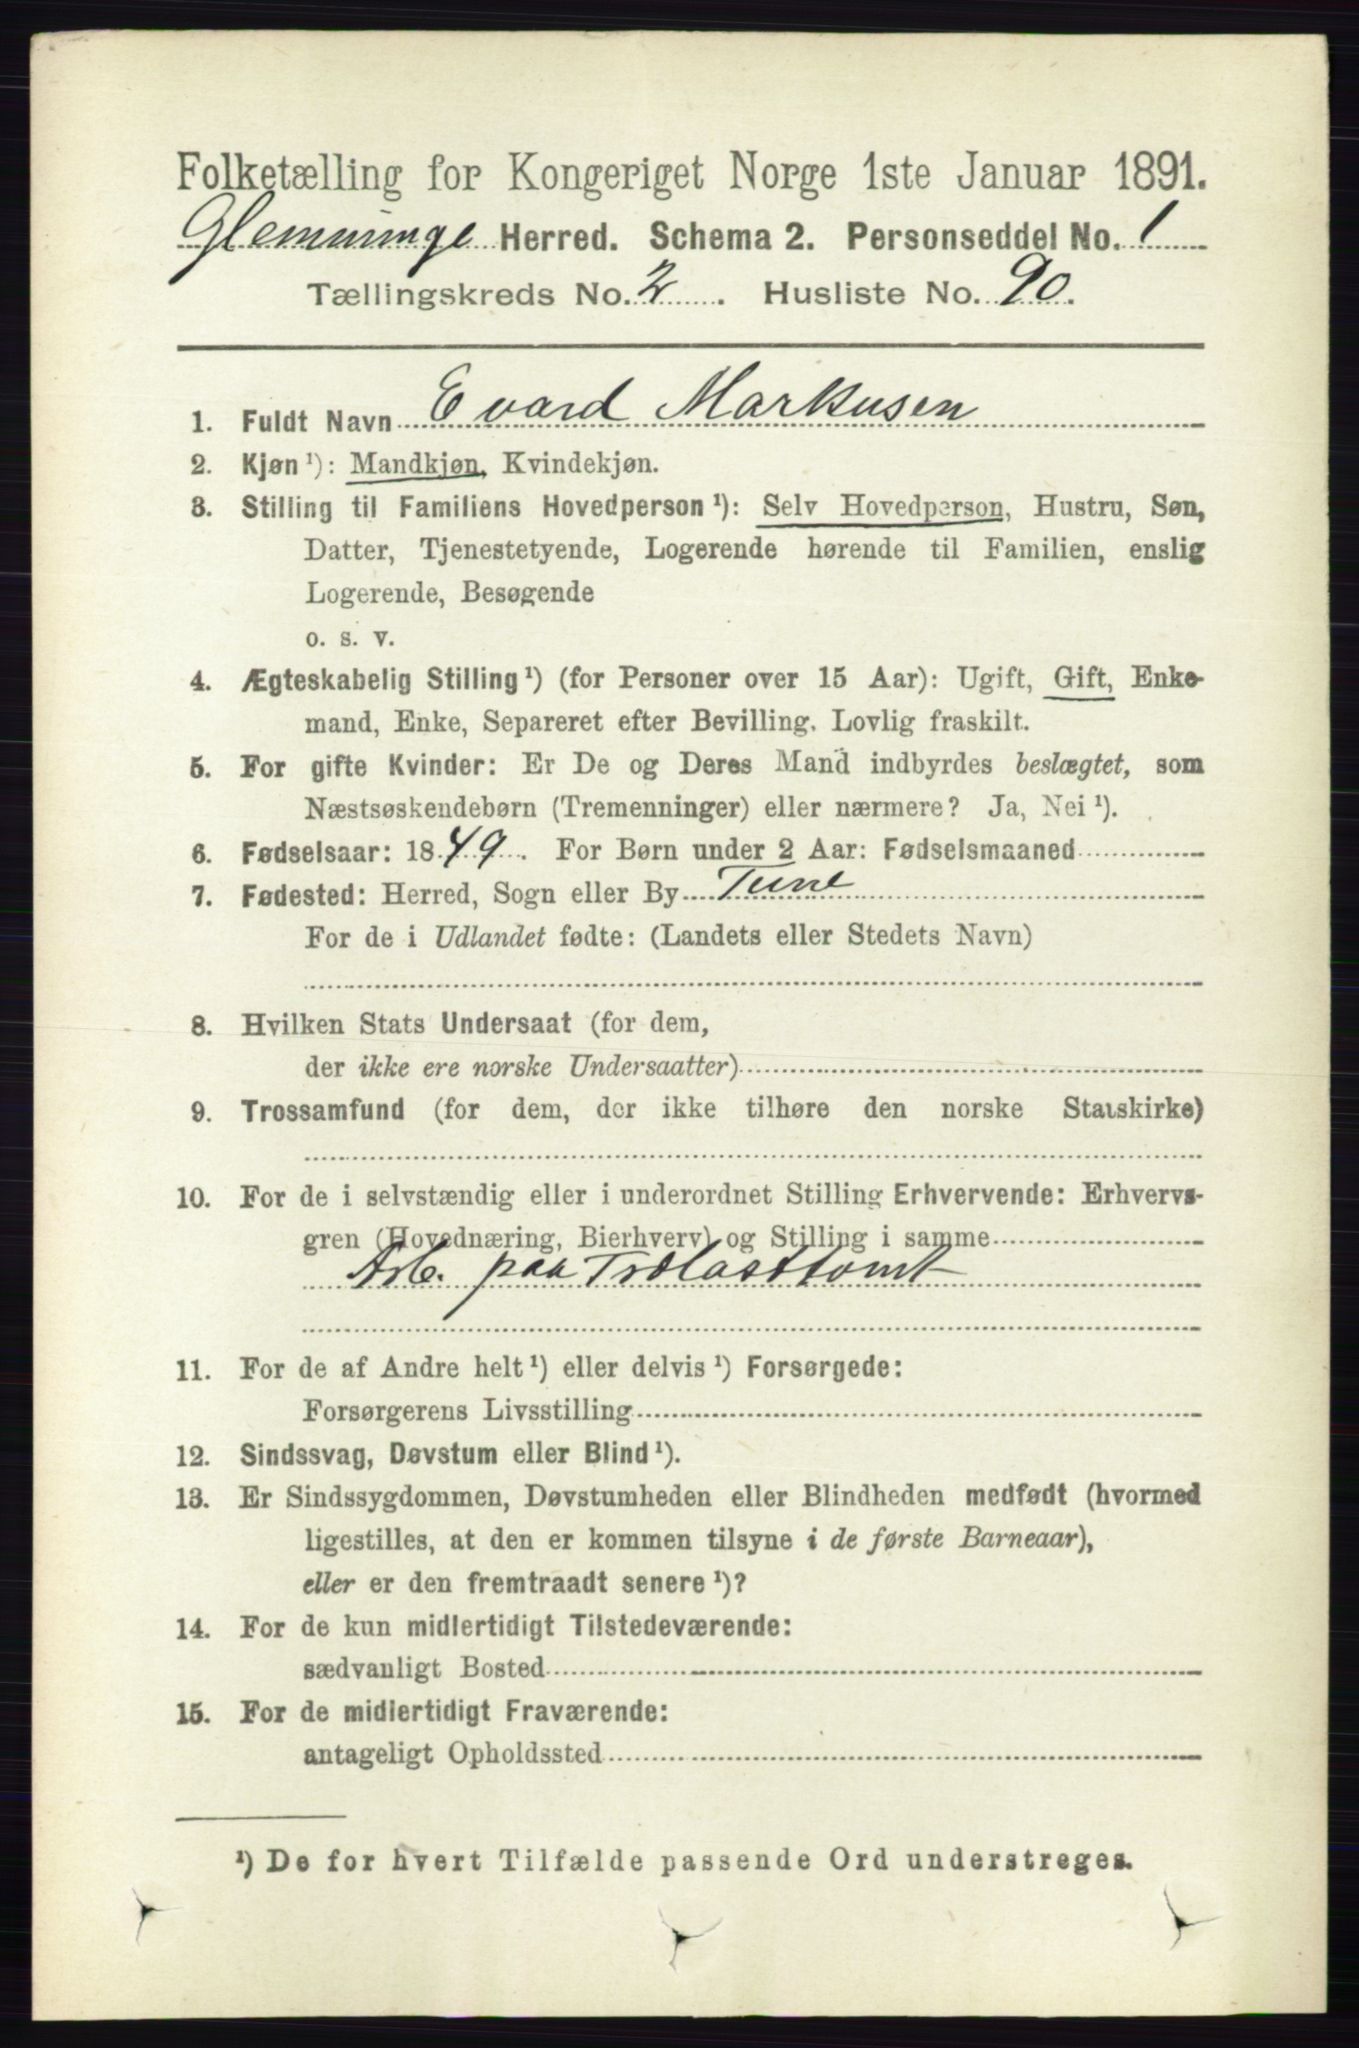 Folketælling for Kongeriget Norge 1ste Januar 1891.
Glemminge Herred. Schema 2. Personseddel No. 1
Tællingskreds No. 2. Husliste No. 90.
1. Fuldt Navn Evard Markusen
2. Kjøn ¹): Mandkjøn, Kvindekjøn.
3. Stilling til Familiens Hovedperson ¹): Selv Hovedperson, Hustru, Søn,
Datter, Tjenestetyende, Logerende hørende til Familien, enslig
Logerende, Besøgende
o. s. v.
4. Ægteskabelig Stilling ¹) (for Personer over 15 Aar): Ugift, Gift, Enke-
mand, Enke, Separeret efter Bevilling. Lovlig fraskilt.
5. For gifte Kvinder: Er De og Deres Mand indbyrdes beslægtet, som
Næstsøskendebørn (Tremenninger) eller nærmere? Ja, Nei ¹).
6. Fødselsaar: 1849. For Børn under 2 Aar: Fødselsmaaned
7. Fødested: Herred, Sogn eller By Tune
For de i Udlandet fødte: (Landets eller Stedets Navn)
8. Hvilken Stats Undersaat (for dem,
der ikke ere norske Undersaatter)
9. Trossamfund (for dem, der ikke tilhøre den norske Statskirke)
10. For de i selvstændig eller i underordnet Stilling Erhvervende: Erhvervs-
gren (Hovednæring, Bierhverv) og Stilling i samme
Arb. paa Trælasttomt
11. For de af Andre helt ¹) eller delvis ¹) Forsørgede:
Forsørgerens Livsstilling
12. Sindssvag, Døvstum eller Blind ¹).
13. Er Sindssygdommen, Døvstumheden eller Blindheden medfødt (hvormed
ligestilles, at den er kommen tilsyne i de første Barneaar),
eller er den fremtraadt senere ¹)?
14. For de kun midlertidigt Tilstedeværende:
sædvanligt Bosted
15. For de midlertidigt Fraværende:
antageligt Opholdssted
¹) De for hvert Tilfælde passende Ord understreges.